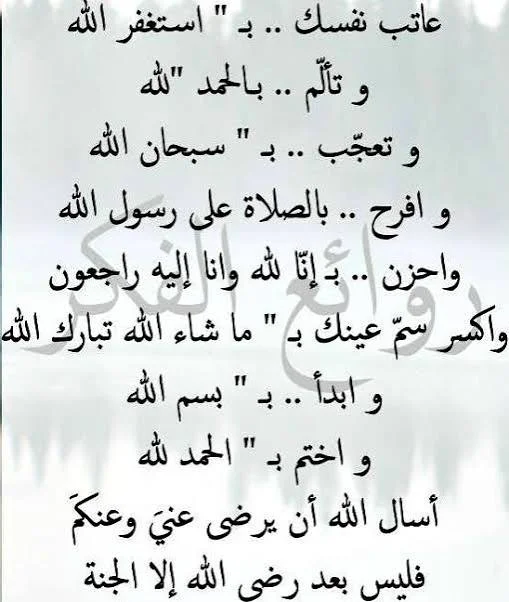 عاتب نفسك .. بـ " استغفر الله
و تألّم .. بـالحمد "لله
و تعجّب .. بـ " سبحان الله
و افرح .. بالصلاة على رسول الله
واحزن .. بـ إنّا لله وانا إليه راجعون
واكسر سمّ عينك بـ " ما شاء الله تبارك الله
و ابدأ .. بـ " بسم الله
و اختم بـ " الحمد لله
أسال الله أن يرضى عنيَ وعنكمَ
فليس بعد رضى الله إلا الجنة
روائع الفكر